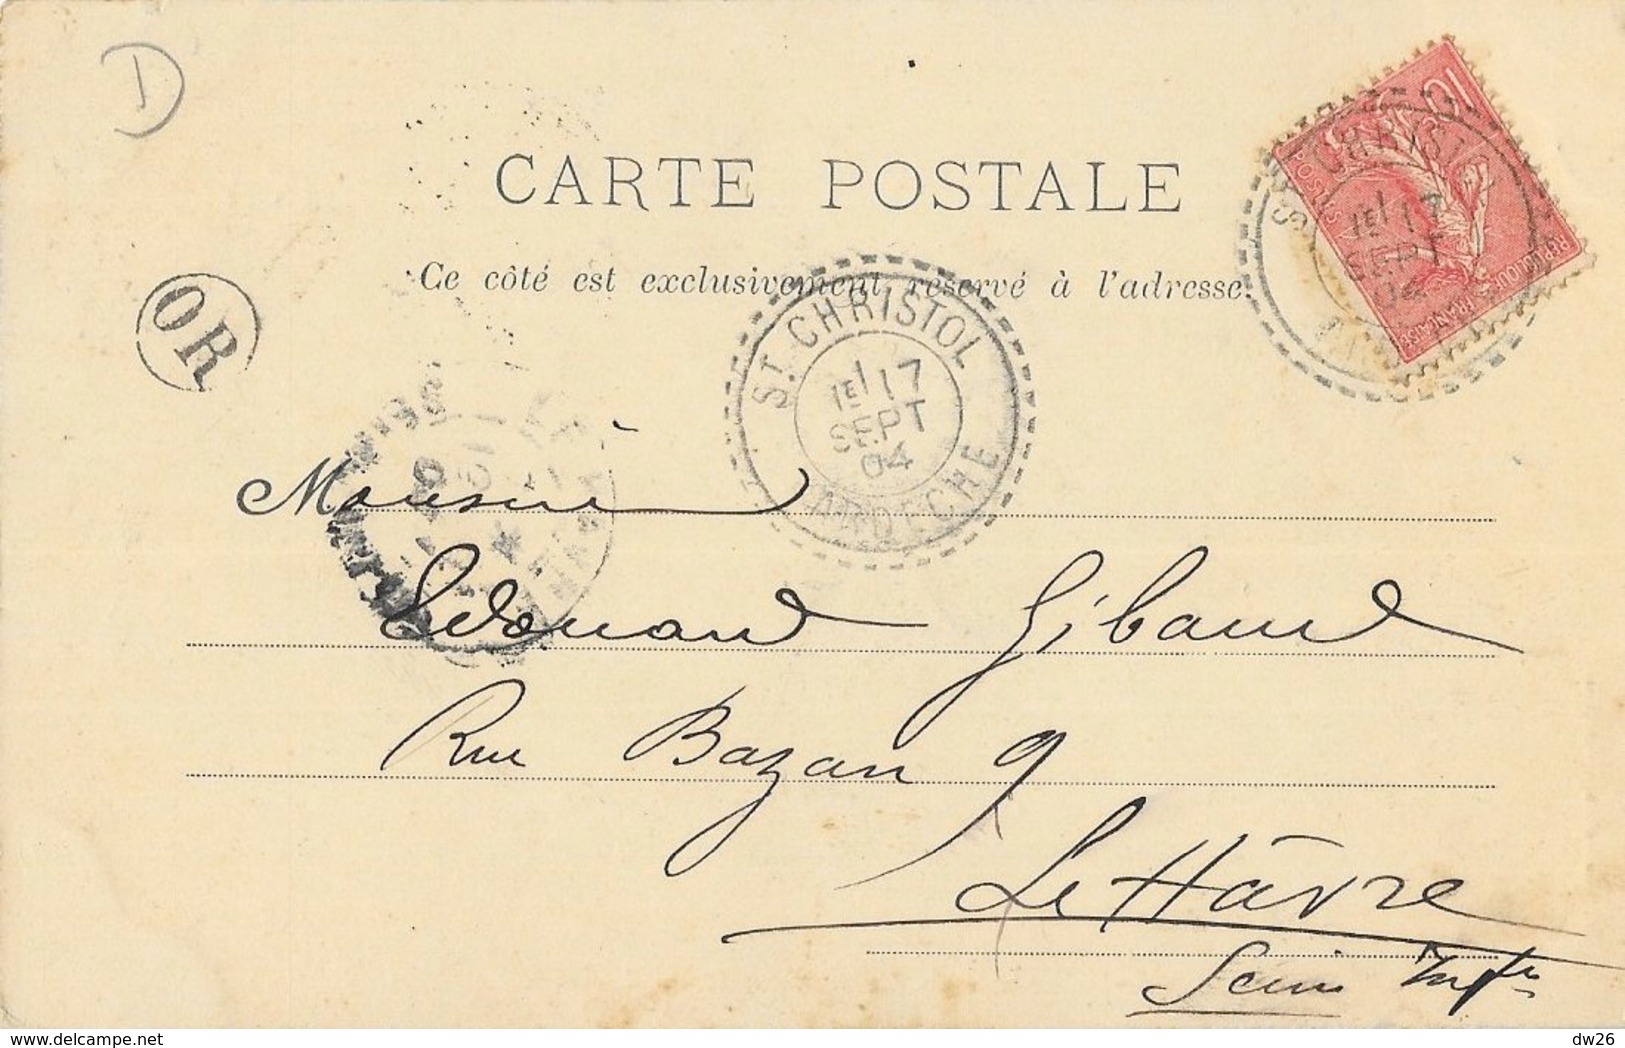 D
CARTE POSTALE
Ce côté est exclusivement réservé à l'adresse.
OR
ST CHRISTOL
1E 17
SEPT
04
ARDECHE
10
POSTES
REPUBLIQUE FRANÇAISE
ST CHRISTOL
1E 17
SEPT
04
Monsieur
Edouard Gibaud
Rue Bazan 9
Le Hâvre
Seine Infre
dw26